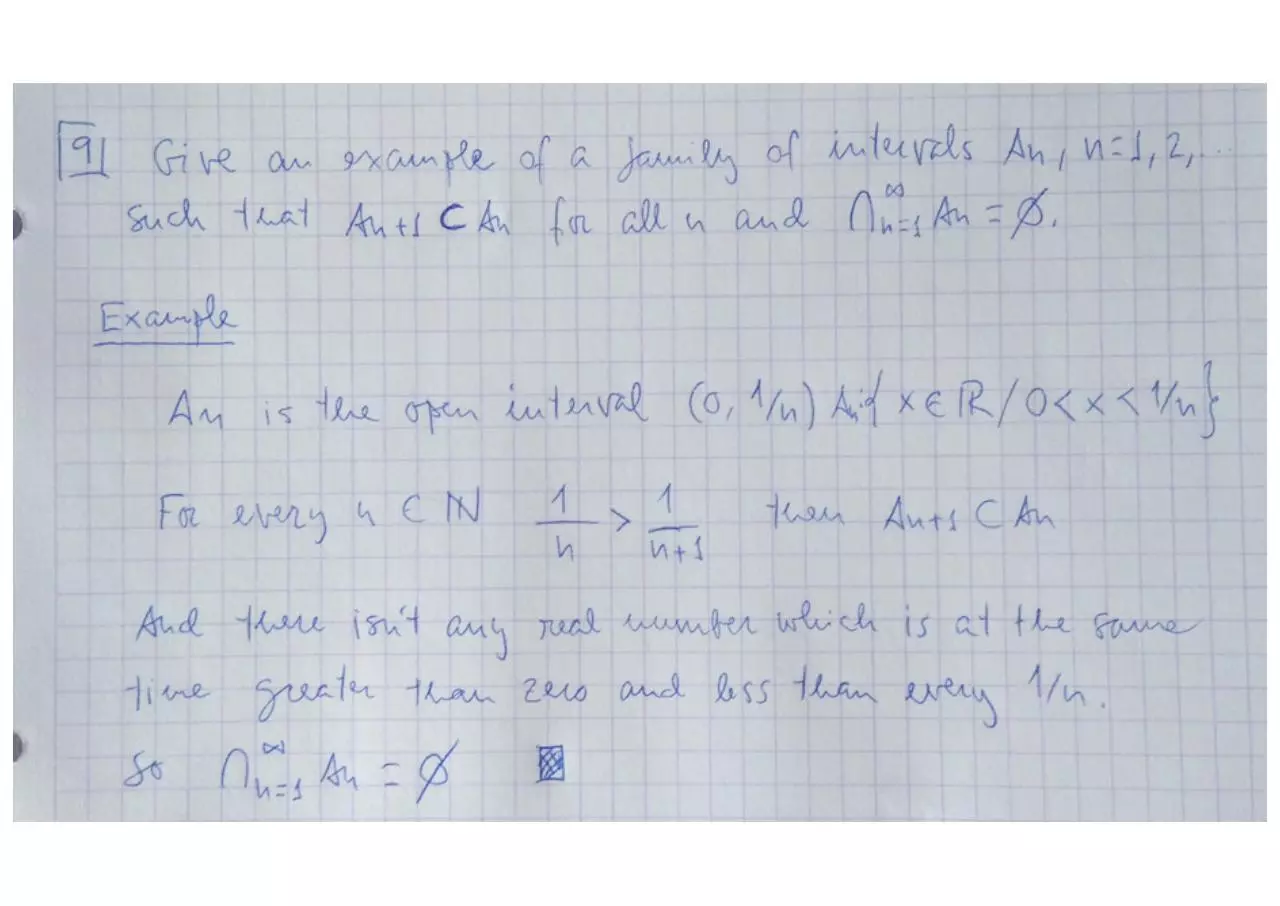 9 Give an example of a family of intervals An, n=1,2,...
such that An+1 ⊂ An for all n and ⋂_{n=1}^∞ An = ∅.
Example
An is the open interval (0, 1/n) An={ x ∈ ℝ / 0 < x < 1/n}
For every n ∈ ℕ 1/n > 1/(n+1) then An+1 ⊂ An
And there isn't any real number which is at the same
time greater than zero and less than every 1/n.
So ⋂_{n=1}^∞ An = ∅